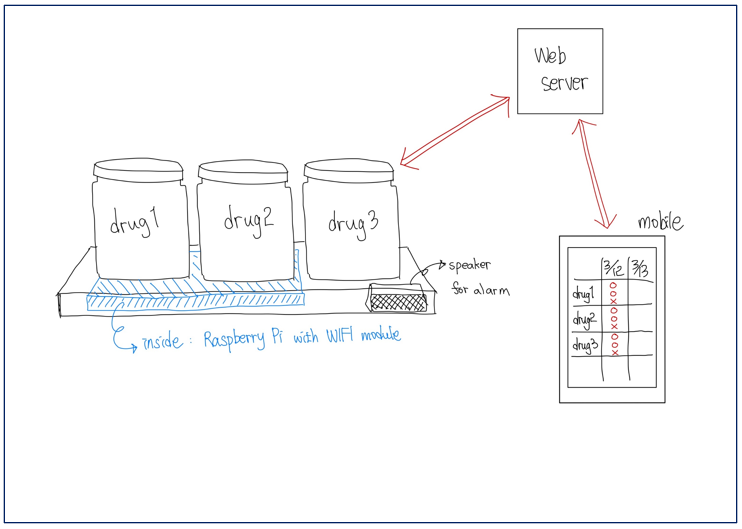 Web
server
drug1
drug2
drug3
mobile
speaker
for alarm
inside : Raspberry Pi with WIFI module
3/12 3/13
drug1 O O X
drug2 O O X
drug3 O O X